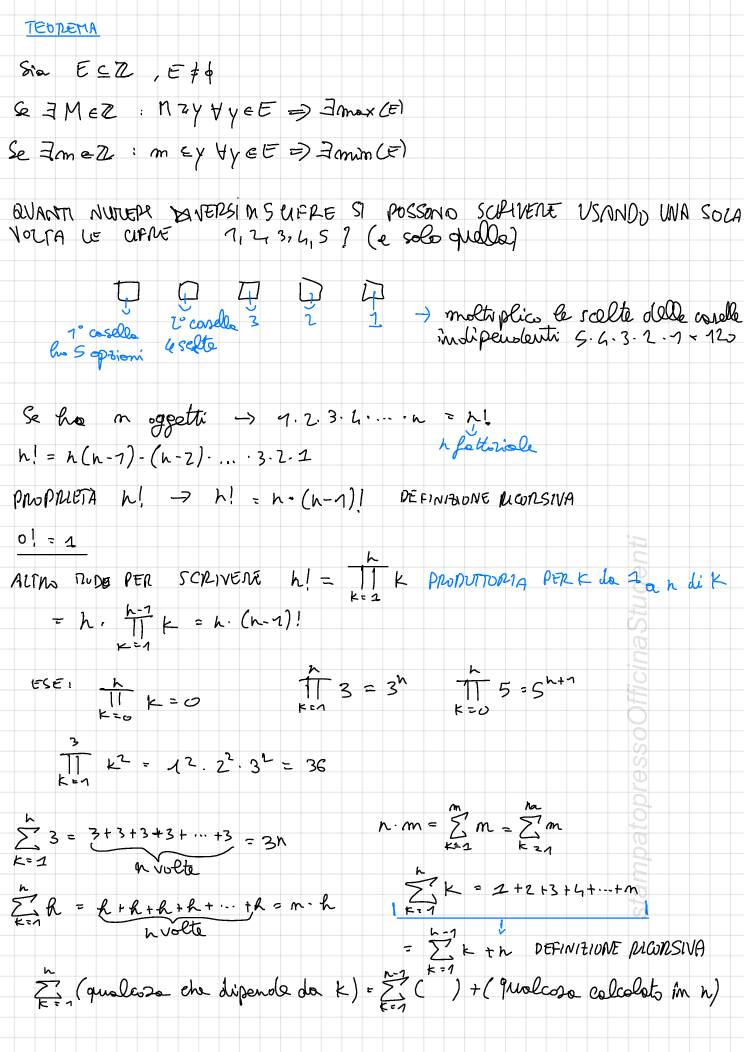 TEOREMA
Sia E ⊆ ℤ , E ≠ ϕ
Se ∃ M ∈ ℤ : M ≥ y ∀ y ∈ E ⇒ ∃ max(E)
Se ∃ m ∈ ℤ : m ≤ y ∀ y ∈ E ⇒ ∃ min(E)
QUANTI NUMERI DIVERSI DI 5 CIFRE SI POSSONO SCRIVERE USANDO UNA SOLA
VOLTA LE CIFRE 1, 2, 3, 4, 5 ? (e solo quelle)
1° casella ho 5 opzioni
2° casella 4 scelte
3 2 1
→ moltiplico le scelte delle caselle
indipendenti 5·4·3·2·1 = 120
Se ho n oggetti → 1·2·3·4·....·n = n!
n fattoriale
n! = n(n-1)·(n-2)· ... ·3·2·1
PROPRIETÀ n! → n! = n·(n-1)! DEFINIZIONE RICORSIVA
0! = 1
ALTRO MODO PER SCRIVERE n! = ∏_{k=1}^{n} k PRODUTTORIA PER K da 1 a n di K
= n · ∏_{k=1}^{n-1} k = n·(n-1)!
ESE: ∏_{k=0}^{n} k = 0 ∏_{k=1}^{n} 3 = 3^n ∏_{k=0}^{n} 5 = 5^{n+1}
∏_{k=1}^{3} k² = 1²·2²·3² = 36
∑_{k=1}^{n} 3 = 3+3+3+3+ ... +3 = 3n
n volte
n·m = ∑_{k=1}^{m} n = ∑_{k=1}^{n} m
∑_{k=1}^{n} h = h+h+h+h+ ... +h = n·h
n volte
∑_{k=1}^{n} k = 1+2+3+4+...+n
= ∑_{k=1}^{n-1} k + n DEFINIZIONE RICORSIVA
∑_{k=1}^{n} (qualcosa che dipende da k) = ∑_{k=1}^{n-1} ( ) + (qualcosa calcolato in n)
stampatopressoOfficinaStudenti